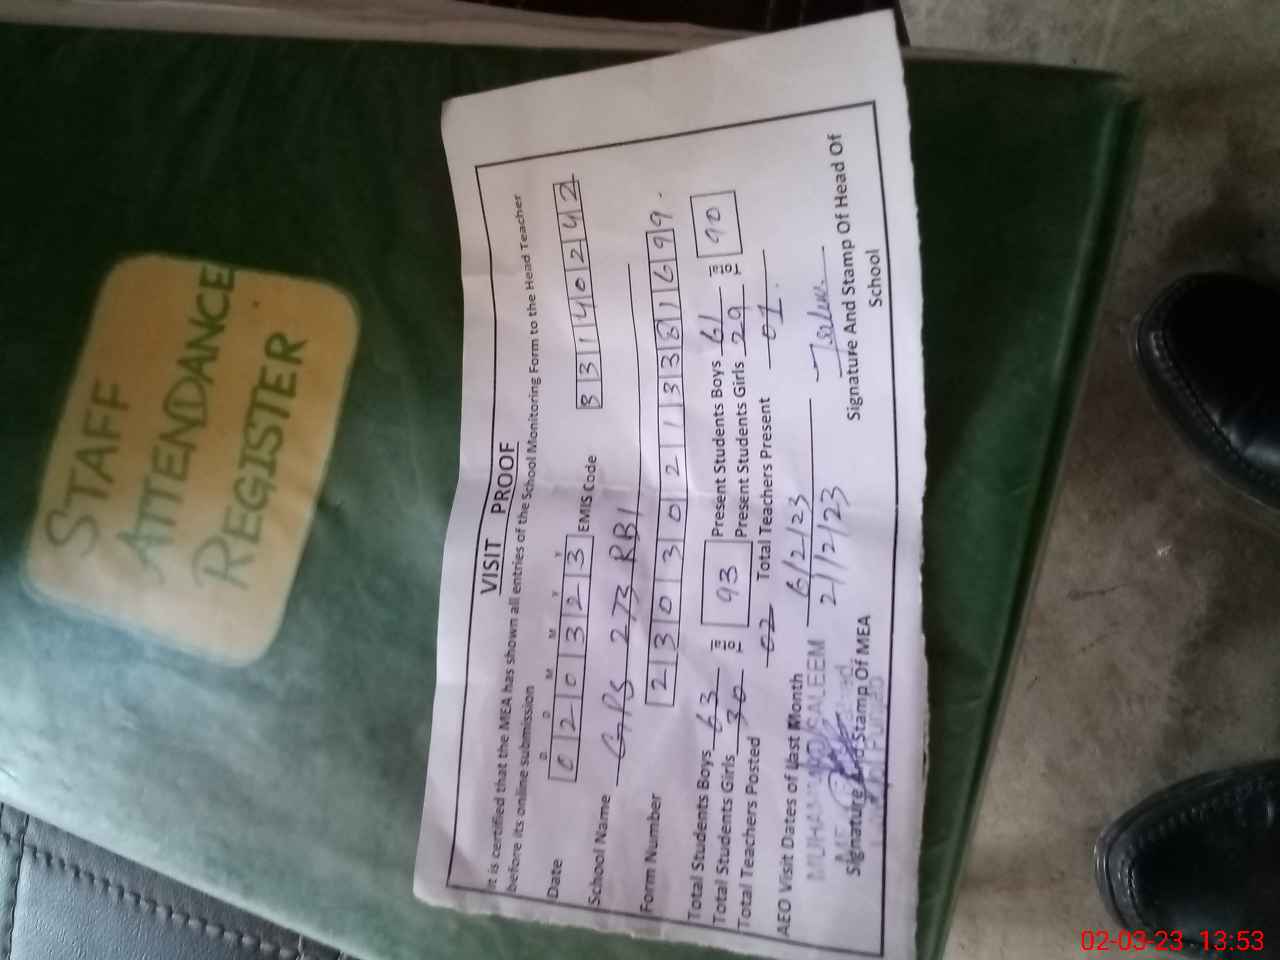 STAFF
ATTENDANCE
REGISTER
VISIT PROOF
It is certified that the MEA has shown all entries of the School Monitoring Form to the Head Teacher
before its online submission
D D M M Y Y
Date 0 2 0 3 2 3 EMIS Code 3 3 1 4 0 2 4 2
School Name GPS 273 RB I
Form Number 2 3 0 3 0 2 1 3 3 8 1 6 9 9
Total Students Boys 63 = 93 Present Students Boys 61 = 90
Total Students Girls 30 Present Students Girls 29
Total Teachers Posted 02 Total Teachers Present 01
AEO Visit Dates of Last Month 6/2/23
21/2/23
MUHAMMAD SALEEM
Signature And Stamp Of MEA
Signature And Stamp Of Head Of
School
02-03-23 13:53